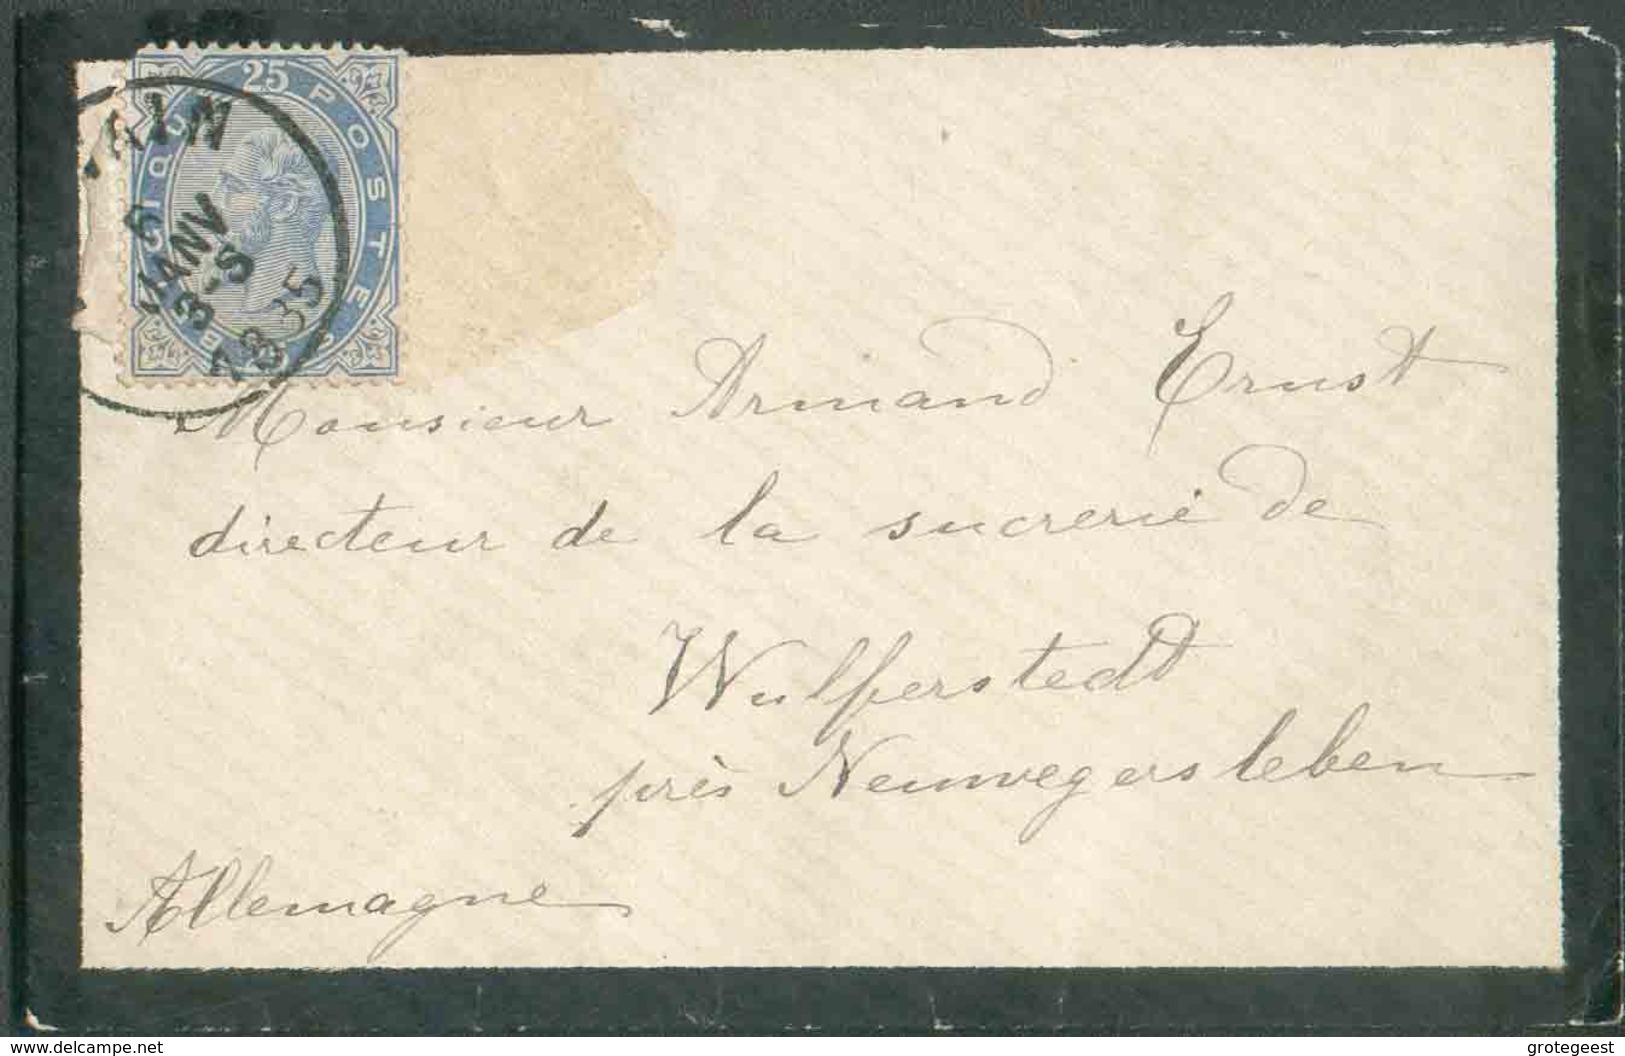 25 POSTES
JANV
3-S
Monsieur Armand Ernst
directeur de la sucrerie de
Wulferstedt
près Neuwegersleben
Allemagne
www.delcampe.net
grotegeest